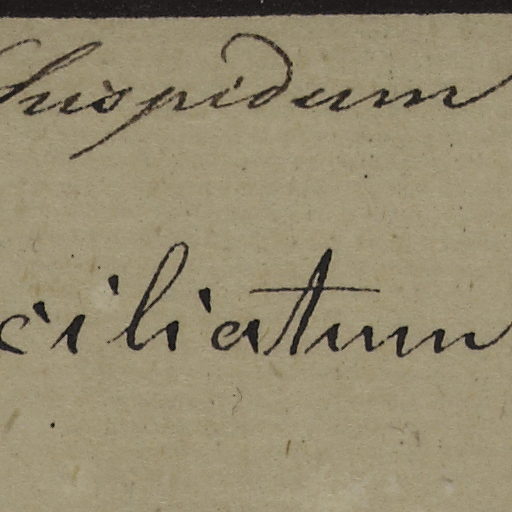 Hispidum
ciliatum